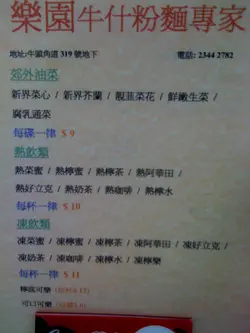 樂園牛什粉麵專家
地址:牛頭角道 319 號地下 電話: 2344 2782
郊外油菜
新界菜心 / 新界芥蘭 / 靚韮菜花 / 鮮嫩生菜 /
腐乳通菜
每碟一律 $ 9
熱飲類
熱菜蜜 / 熱檸蜜 / 熱檸茶 / 熱阿華田 /
熱好立克 / 熱奶茶 / 熱咖啡 / 熱檸水
每杯一律 $ 10
凍飲類
凍菜蜜 / 凍檸蜜 / 凍檸茶 / 凍阿華田 / 凍好立克 /
凍奶茶 / 凍咖啡 / 凍檸水 / 凍檸樂
每杯一律 $ 11
檸底可樂
可口可樂